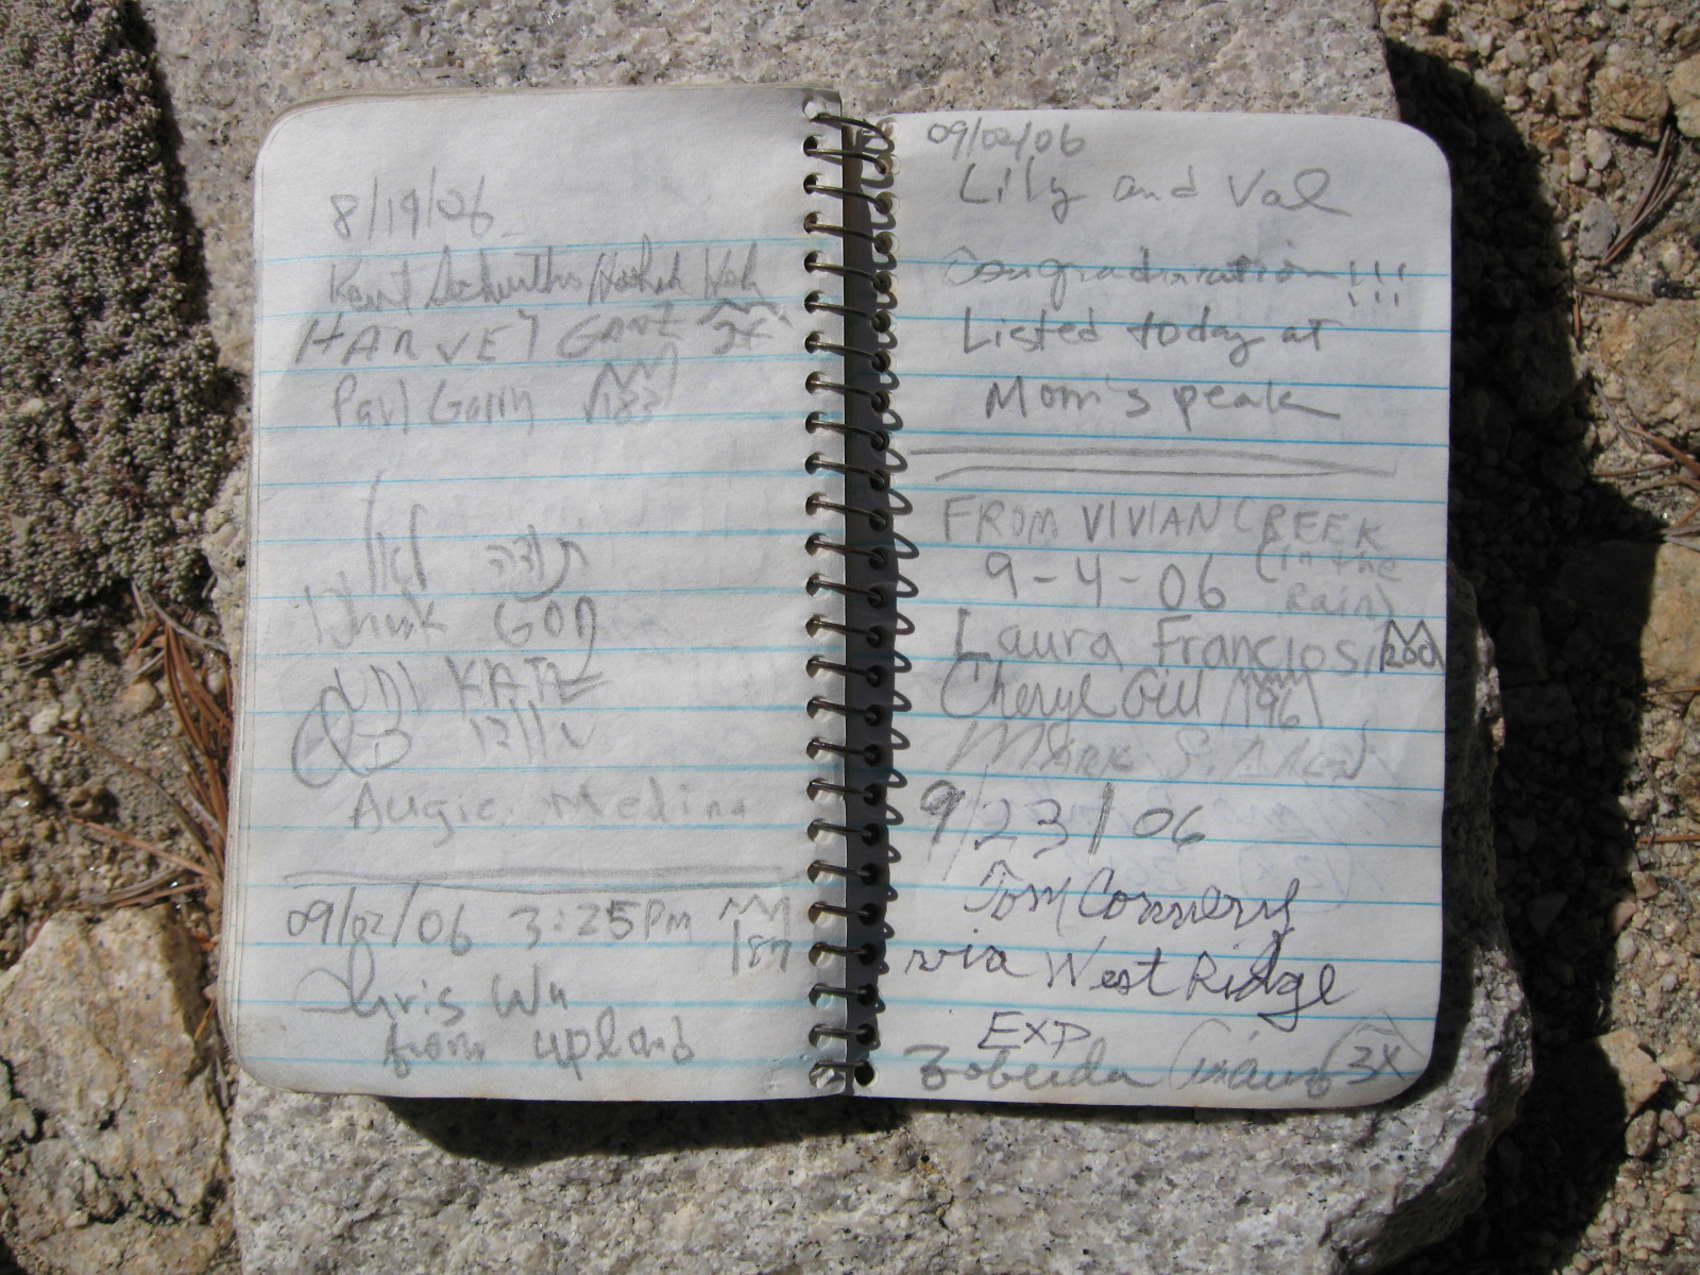 8/19/06
Kent
HARVEY GANZ 2x
Paul
תודה לאל
Thank GOD
KATZ
Augie Medina
09/02/06 3:25PM 187
Chris Wu
from upland
09/02/06
Lily and Val
Congradiration!!!
Listed today at
Mom's peak
FROM VIVIAN CREEK
9-4-06 (in the
Rain)
Laura Franciosi 200
Cheryl Gill 196
MARK S.
9/23/06
Tom Connery
via West Ridge
EXP
Zobeida 3X